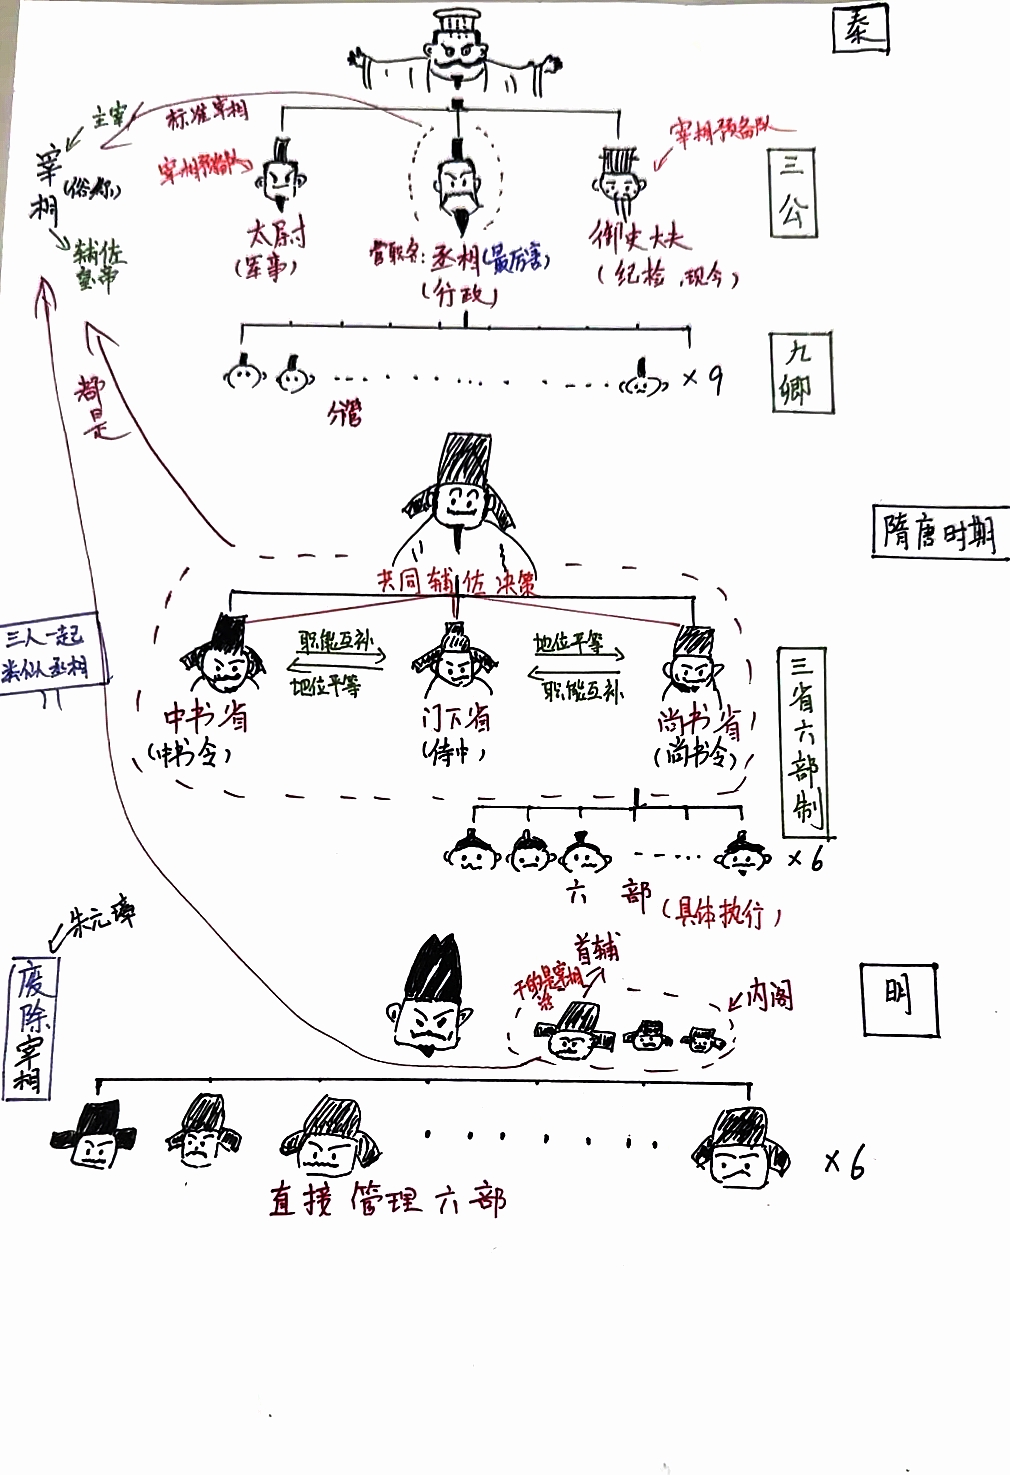 秦
主宰
标准宰相
宰相
(俗称)
辅佐
皇帝
宰相预备队
宰相预备队
三公
太尉
(军事)
官职名:丞相(最厉害)
(行政)
御史大夫
(纪检,现今)
九卿
×9
分管
都是
隋唐时期
共同辅佐决策
三人一起
类似丞相
职能互补
地位平等
地位平等
职能互补
中书省
(中书令)
门下省
(侍中)
尚书省
(尚书令)
三省六部制
×6
六部
(具体执行)
朱元璋
废除宰相
首辅
干的是宰相
活
内阁
明
×6
直接管理六部